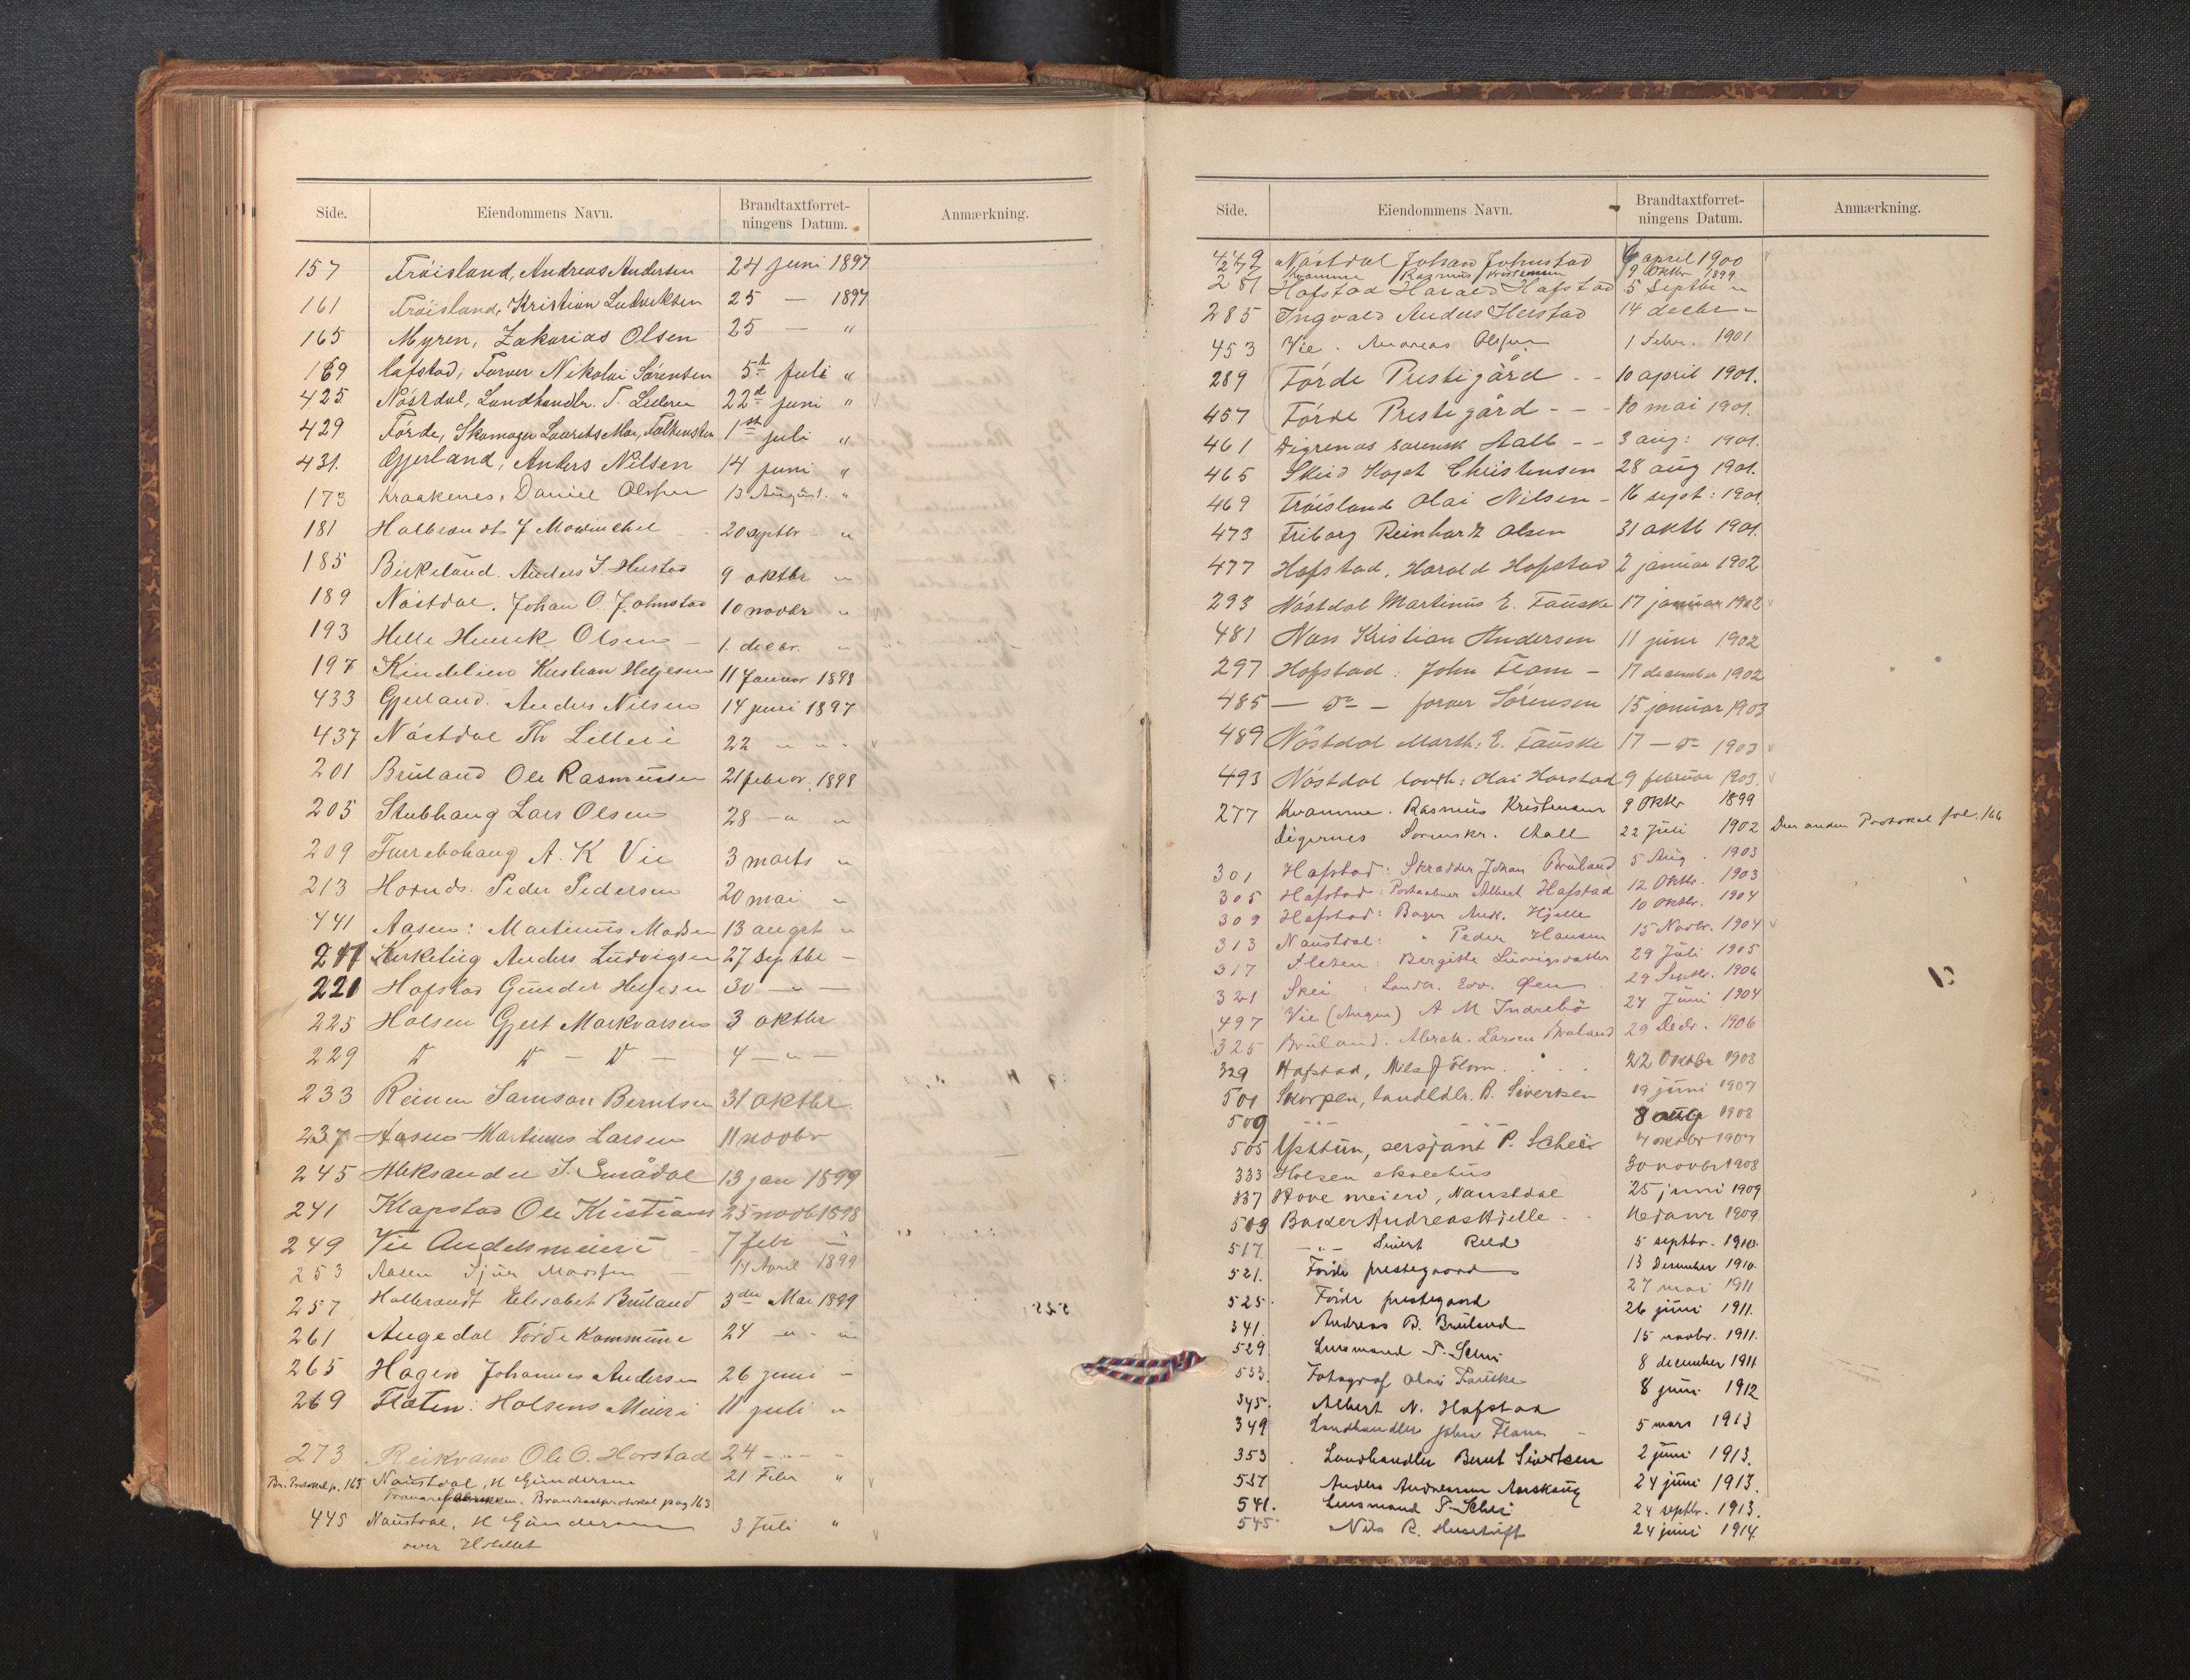 Side. Eiendommens Navn. Brandtaxtforret-ningens Datum. Anmærkning.
157 Tröisland, Andreas Andersen 24 juni 1897
161 Tröisland, Kristian Ludviksen 25 — 1897
165 Myren, Zakarias Olsen 25 — "
169 Hafstad, Farver Nikolai Sörensen 5t juli "
425 Nöstdal, Landhandlr. T. 22d juni "
429 Förde, Skomager Laurits Falkensten 1st juli "
431. Gjerland, Anders Nilsen 14 juni "
173 Kraakenes, Daniel Olsen 13 August. "
181 Halbrendt J Mowinckel 20 septbr "
185 Birkeland. Anders J. Hustad 9 oktbr "
189 Nöstdal. Johan O. Johnstad 10 novbr "
193 Helle Henrik Olsen — 1. decbr. "
197 Kristian Helgesen 11 Januar 1898
433 Gjerland. Anders Nilsen 14 juni 1897
437 Nöstdal Th Lilleri 22 " " "
201 Bruland Ole Rasmussen 21 febr. 1898
205 Stubhaug Lars Olsen 28 — " "
209 Furrebøhaug A. K Vie 3 marts "
213 Hornds. Peder Pedersen 20 mai "
441 Aasen: Martinus Madsen 13 augst "
217 Kirketeig Anders Ludvigsen 27 septbr —
221 Hafstad Gunder Helgesen 30 — " —
225 Holsen Gjert Markvarsen 3 oktbr
229 D D — D — 4 — " —
233 Reinen Samson Berntsen 31 oktbr.
237 Aasen Martinus Larsen 11 novbr
245 Aleksander J. Smådal 13 jan 1899
241 Klopstad Ole Kristians 25 novb 1898
249 Vie Andelsmeieri — 7 febr "
253 Aasen Sjur Madsen — 14 April 1899
257 Halbrendt Elisabet Bruland 3die Mai 1899
261 Angedal Förde Kommune 24 " "
265 Hagen Johannes Andersen 26 juni "
269 Flaten: Holsens Meieri 11 juli "
273 Reikvam Ole O. Horstad 24 — " — "
Br. Protokol p. 163 Naustdal, H Gundersen 21 Febr "
Brandtaxtprotokol pag 163
445 Naustdal, H Gundersen 3. Juli "
over Hotellet
Side. Eiendommens Navn. Brandtaxtforret-ningens Datum. Anmærkning.
449 Nöstdal Johan Johnstad 6 april 1900
277 Kvamme Rasmus Kristensen 9 Oktbr 1899
281 Hafstad Harald Hafstad 5 Septbr "
285 Ingvald Anders Herstad 14 decbr "
453 Vie. Andreas Olsen 1 Febr. 1901
289 Förde Prestigård - - 10 april 1901.
457 Förde Prestigård - - - 10 mai 1901.
461 Digrenæs sorensk Aall - - 3 aug: 1901.
465 Skeid Kapt Christensen 28 aug 1901.
469 Tröisland Olai Nilsen - 16 sept: 1901
473 Friborg Reinhardt Olsen 31 oktb 1901.
477 Hafstad, Harald Hafstad 2 januar 1902
293 Nöstdal Martinus E. Fauske 17 januar 1902
481 Næss Kristian Andersen 11 juni 1902
297 Hafstad: John Flam - 17 december 1902
485 — Do — farver Sörensen 15 januar 1903
489 Nöstdal Marth: E. Fauske 17 — Do 1903
493 Nöstdal landh: Olai Horstad 9 februar 1903.
277 Kvamme. Rasmus Kristensen 9 Oktbr 1899
Digernes Sorenskr. Aall 22 Juli 1902 Den anden Protokol fol. 166
301 Hafstad: Skrædder Johan Bruland 5 Aug. 1903
305 Hafstad: Postaabner Albert Hafstad 12 Oktbr. 1903
309 Hafstad: Bager Andr. Hjelle 10 Oktbr. 1904
313 Naustdal: " Peder Hansen 15 Novbr. 1904
317 Bergitte Ludvigsdatter 29 Juli 1905
321 Skei: Landh. Edv. Øen 29 Septbr. 1906
497 Vie (Angen) A M Indrebö 24 Juni 1904
325 Bruland. Abrah. Larsen Bruland 29 Decbr. 1906
329 Hafstad, Nils J Flom. 22 Oktbr 1908
501 Skorpen, landhdlr. B. Sivertsen 19 juni 1907
509 -"- -"- 8 aug 1908
505 Ysttun, sersjant P. Schei 4 oktbr 1907
333 Holsen skolehus 30 novbr 1908
337 Hove meieri, Naustdal 25 juni 1909
509 Baker Andreas Hjelle - . 16 janr 1909
517. — " — Sivert 5 septbr. 1910.
521. Förde prestegaard 13 Desember 1910.
525. Förde prestegaard 27 mai 1911
341. Andreas B. Bruland 26 juni 1911.
529 Lensmand P. Schei 15 novbr. 1911.
533. Fotograf Olai Fauske 8 december 1911
345. Albert N. Hafstad 8 juni 1912
349 Landhandler John Flam - 5 mars 1913
353. Landhandler Bernt Sivertsen 2 juni 1913.
537 Anders Andreassen 24 juni 1913.
541. Lensmand P. Schei 24 septbr. 1913.
545 Nils R. 24 juni 1914.